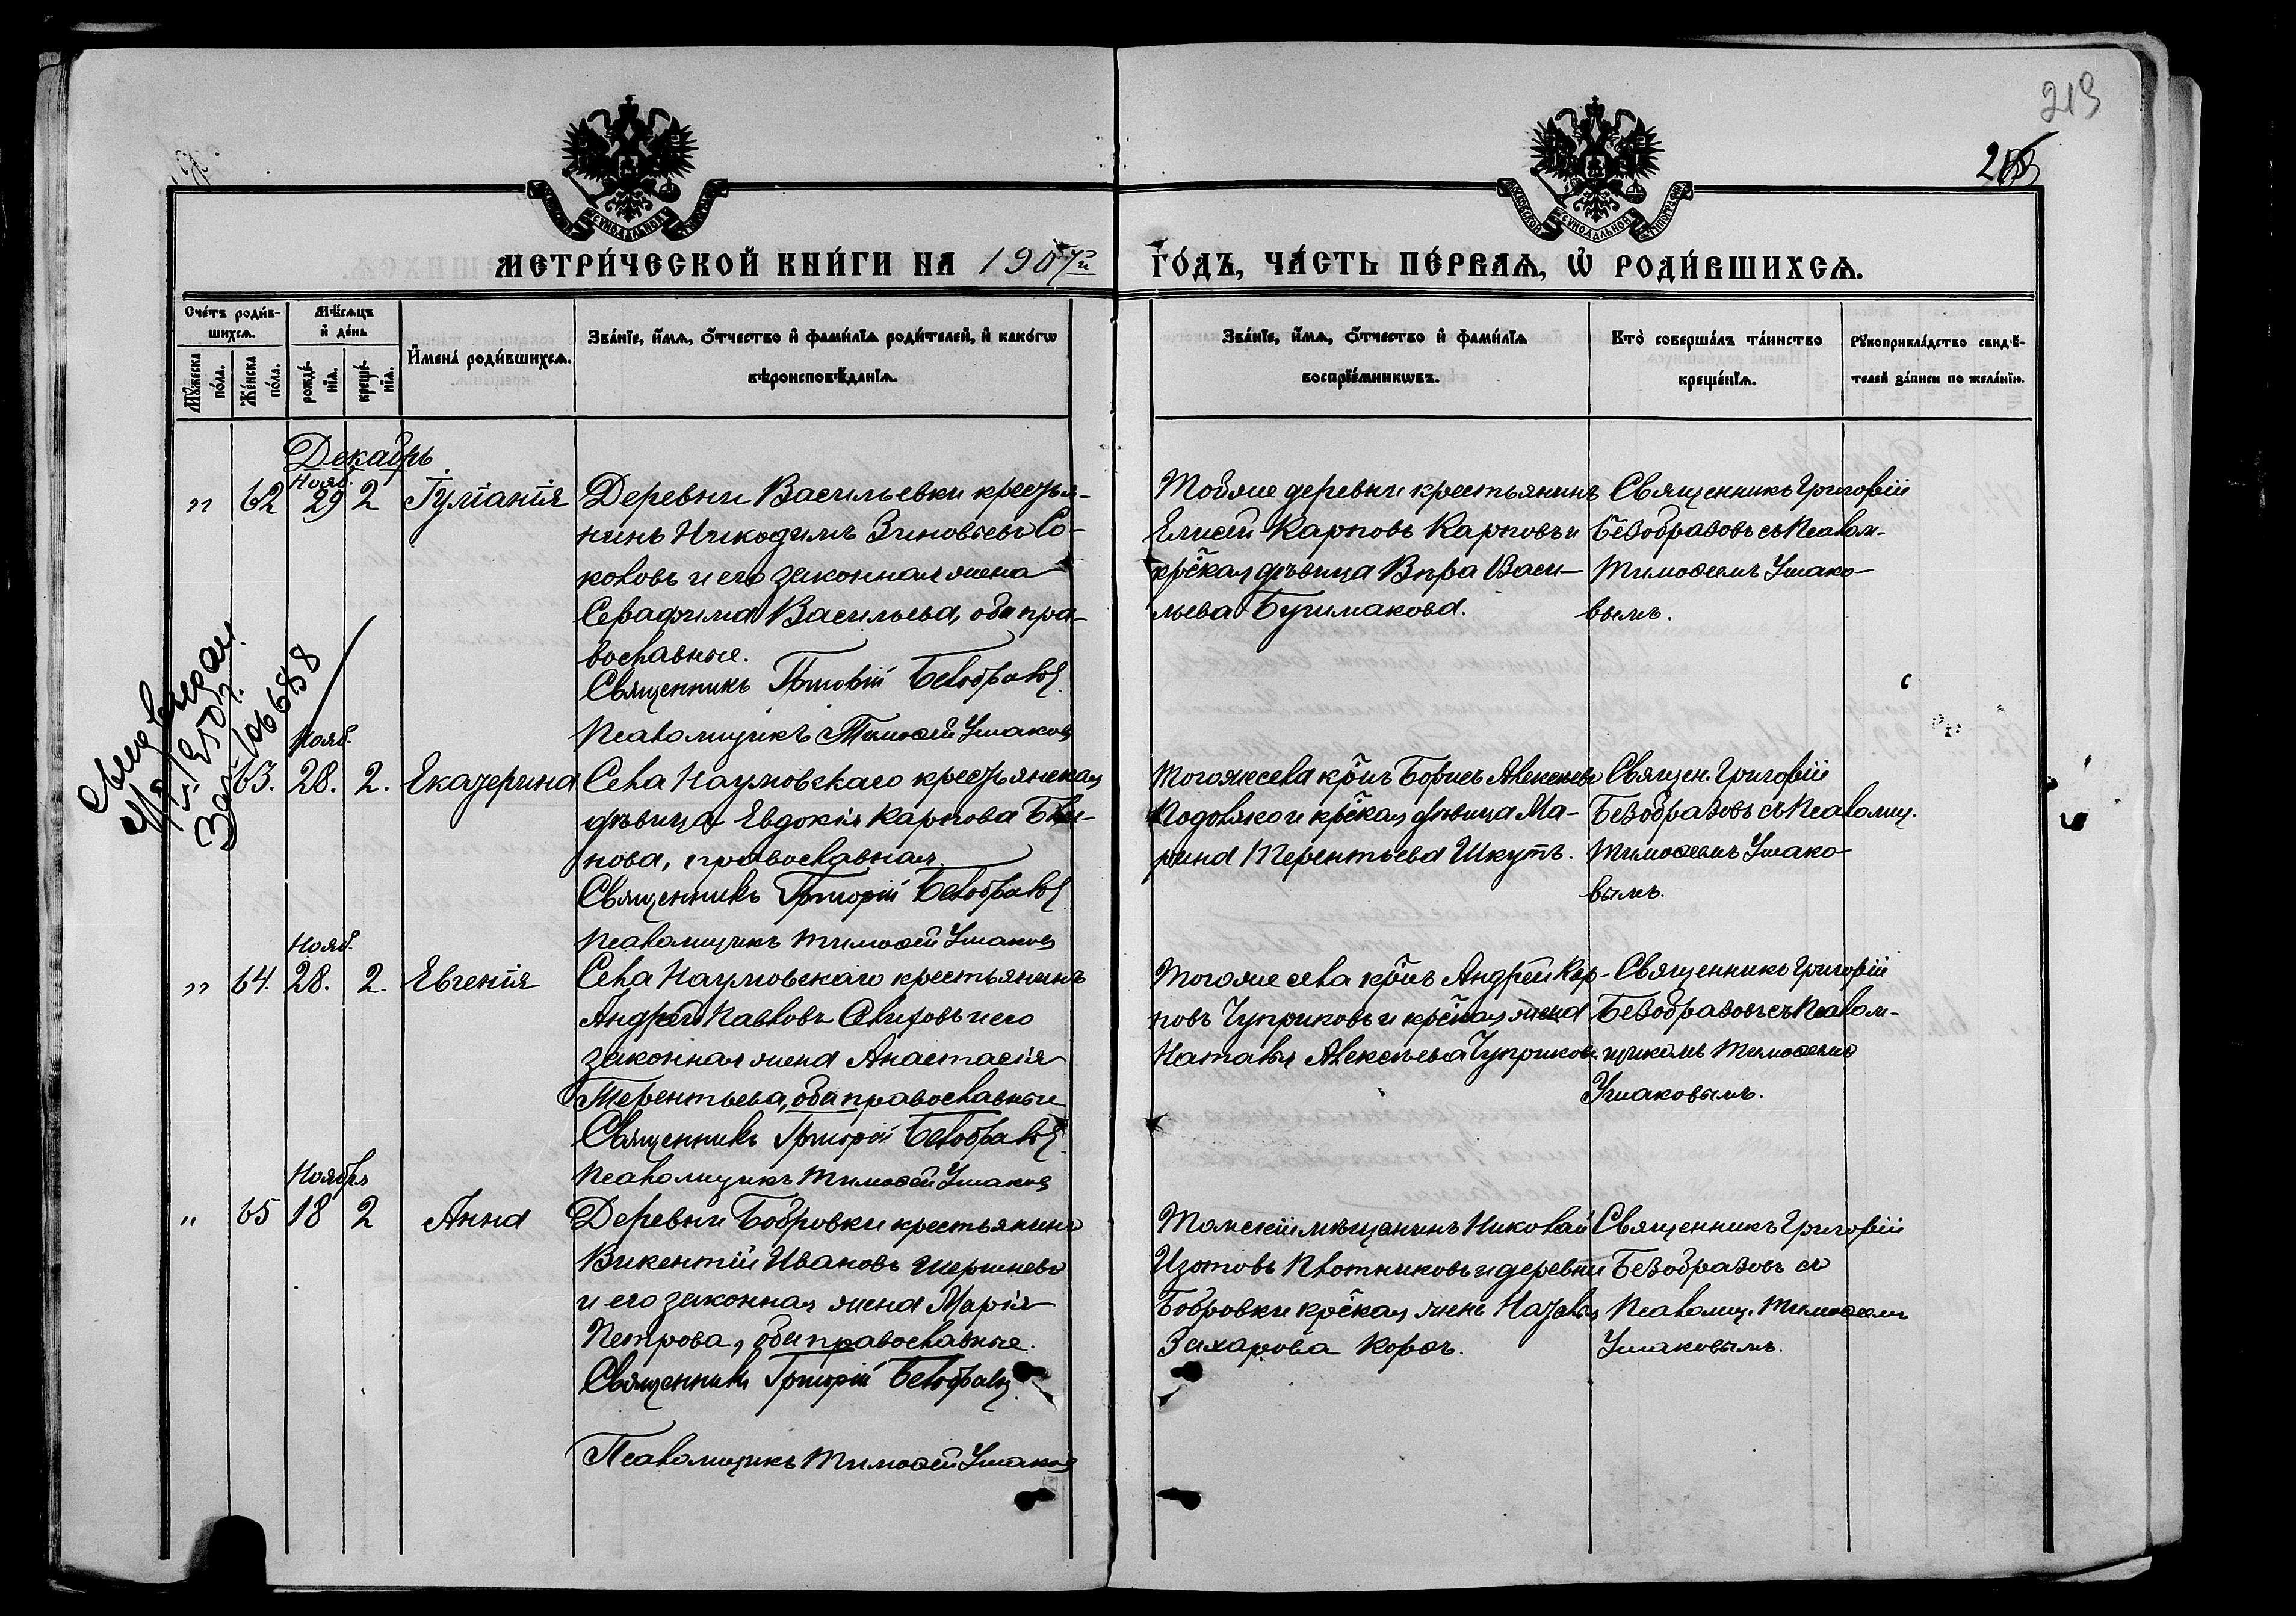 219
МЕТРИ́ЧЕСКОЙ КНИ́ГИ НА 1907й ГО́ДЪ, ЧА́СТЬ ПЕ́РВАѦ, Ѡ҆ РОДИ́ВШИХСѦ.
Сче́тъ роди́в-
шихсѧ.
Мꙋ́жеска по́ла.
Же́нска по́ла.
Мѣ́сѧцъ
и҆ де́нь
рожде́-
нїѧ.
креще́-
нїѧ.
И҆мена̀ роди́вшихсѧ.
Зва́нїе, и҆́мѧ, ѻ҆́тчество и҆ фами́лїѧ роди́телей, и҆ како́гѡ
вѣроисповѣ́данїѧ.
Зва́нїе, и҆́мѧ, ѻ҆́тчество и҆ фами́лїѧ
воспрїе́мникѡвъ.
Кто̀ соверша́лъ та́инство
креще́нїѧ.
Рꙋкоприкла́дство свидѣ́-
телей за́писи по жела́нїю.
Декабрь
Нояб.
„ 62 29 2 Іуліанія
Деревни Васильевки крестья-
нинъ Никодимъ Зиновьевъ Со-
коловъ и его законная жена
Серафима Васильева, оба пра-
вославные.
Священникъ Григорій Безобразов
Псаломщикъ Тимофей Ушаков
Тойже деревни крестьянинъ
Елисей Карповъ Карповъ и
кр̃ская дѣвица Вѣра Васи-
льева Бушмакова.
Священникъ Григорій
Безобразовъ съ Псалом-
Тимофеемъ Ушако-
вымъ.
106688
Нояб.
63. 28. 2. Екатерина
Села Наумовскаго крестьянская
дѣвица Евдокія Карпова Бли-
нова, православная
Священникъ Григорій Безобразов
Псаломщикъ Тимофей Ушаков
Тогоже села кр̃нъ Борисъ Алексѣевъ
Подоляко и кр̃ская дѣвица Ма-
рина Терентьева Шкутъ.
Священ. Григорій
Безобразовъ съ Псаломщ.
Тимофеемъ Ушако-
вымъ.
Нояб.
„ 64. 28. 2. Евгенія
Села Наумовскаго крестьянинъ
Андрей Павловъ и его
законная жена Анастасія
Терентьева, оба православные
Священникъ Григорій Безобразов
Псаломщикъ Тимофей Ушаков
Тогоже села кр̃нъ Андрей Кар-
повъ Чуприковъ и кр̃ская жена
Наталья Алексѣева Чуприкова
Священникъ Григорій
Безобразовъ съ Псалом-
щикомъ Тимофеемъ
Ушаковымъ.
Ноября
„ 65 18 2 Анна
Деревни Бобровки крестьянинъ
Викентій Ивановъ Шершневъ
и его законная жена Марія
Петрова, оба православные.
Священникъ Григорій Безобразов
Псаломщикъ Тимофей Ушаков
Томскій мѣщанинъ Николай
Изотовъ Плотниковъ и деревни
Бобровки кр̃ская жена Наталья
Захарова
Священникъ Григорій
Безобразовъ съ
Псаломщ. Тимофеемъ
Ушаковымъ.